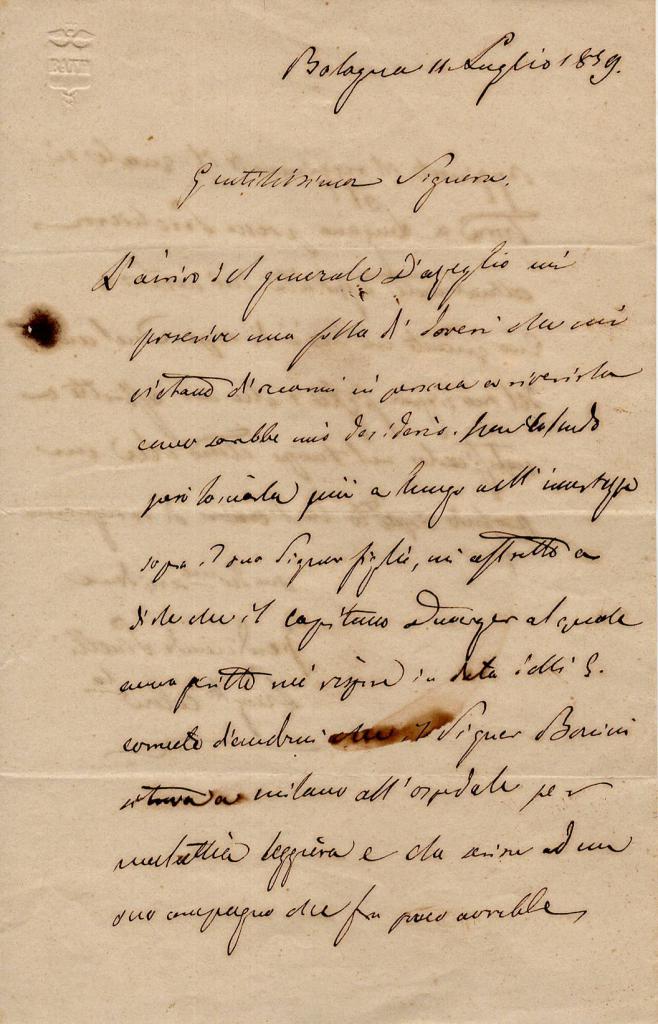 BATH
Bologna 11 Luglio 1859.
Gentilissima Signora.
L'arrivo del generale D'azeglio mi
prescrive una folla di doveri che mi
vietano di recarmi in persona a riverirla
come sarebbe mio desiderio. Non volendo
però lasciarla più a lungo nell' incertezza
sopra il suo Signor figlio, mi affretto a
dirle che il capitano al quale
aveva scritto mi rispose in data delli 5.
corrente che il Signor Bonini
si trova a milano all'ospedale per
malattia leggiera e che scrisse ad un
suo compagno che fra poco avrebbe